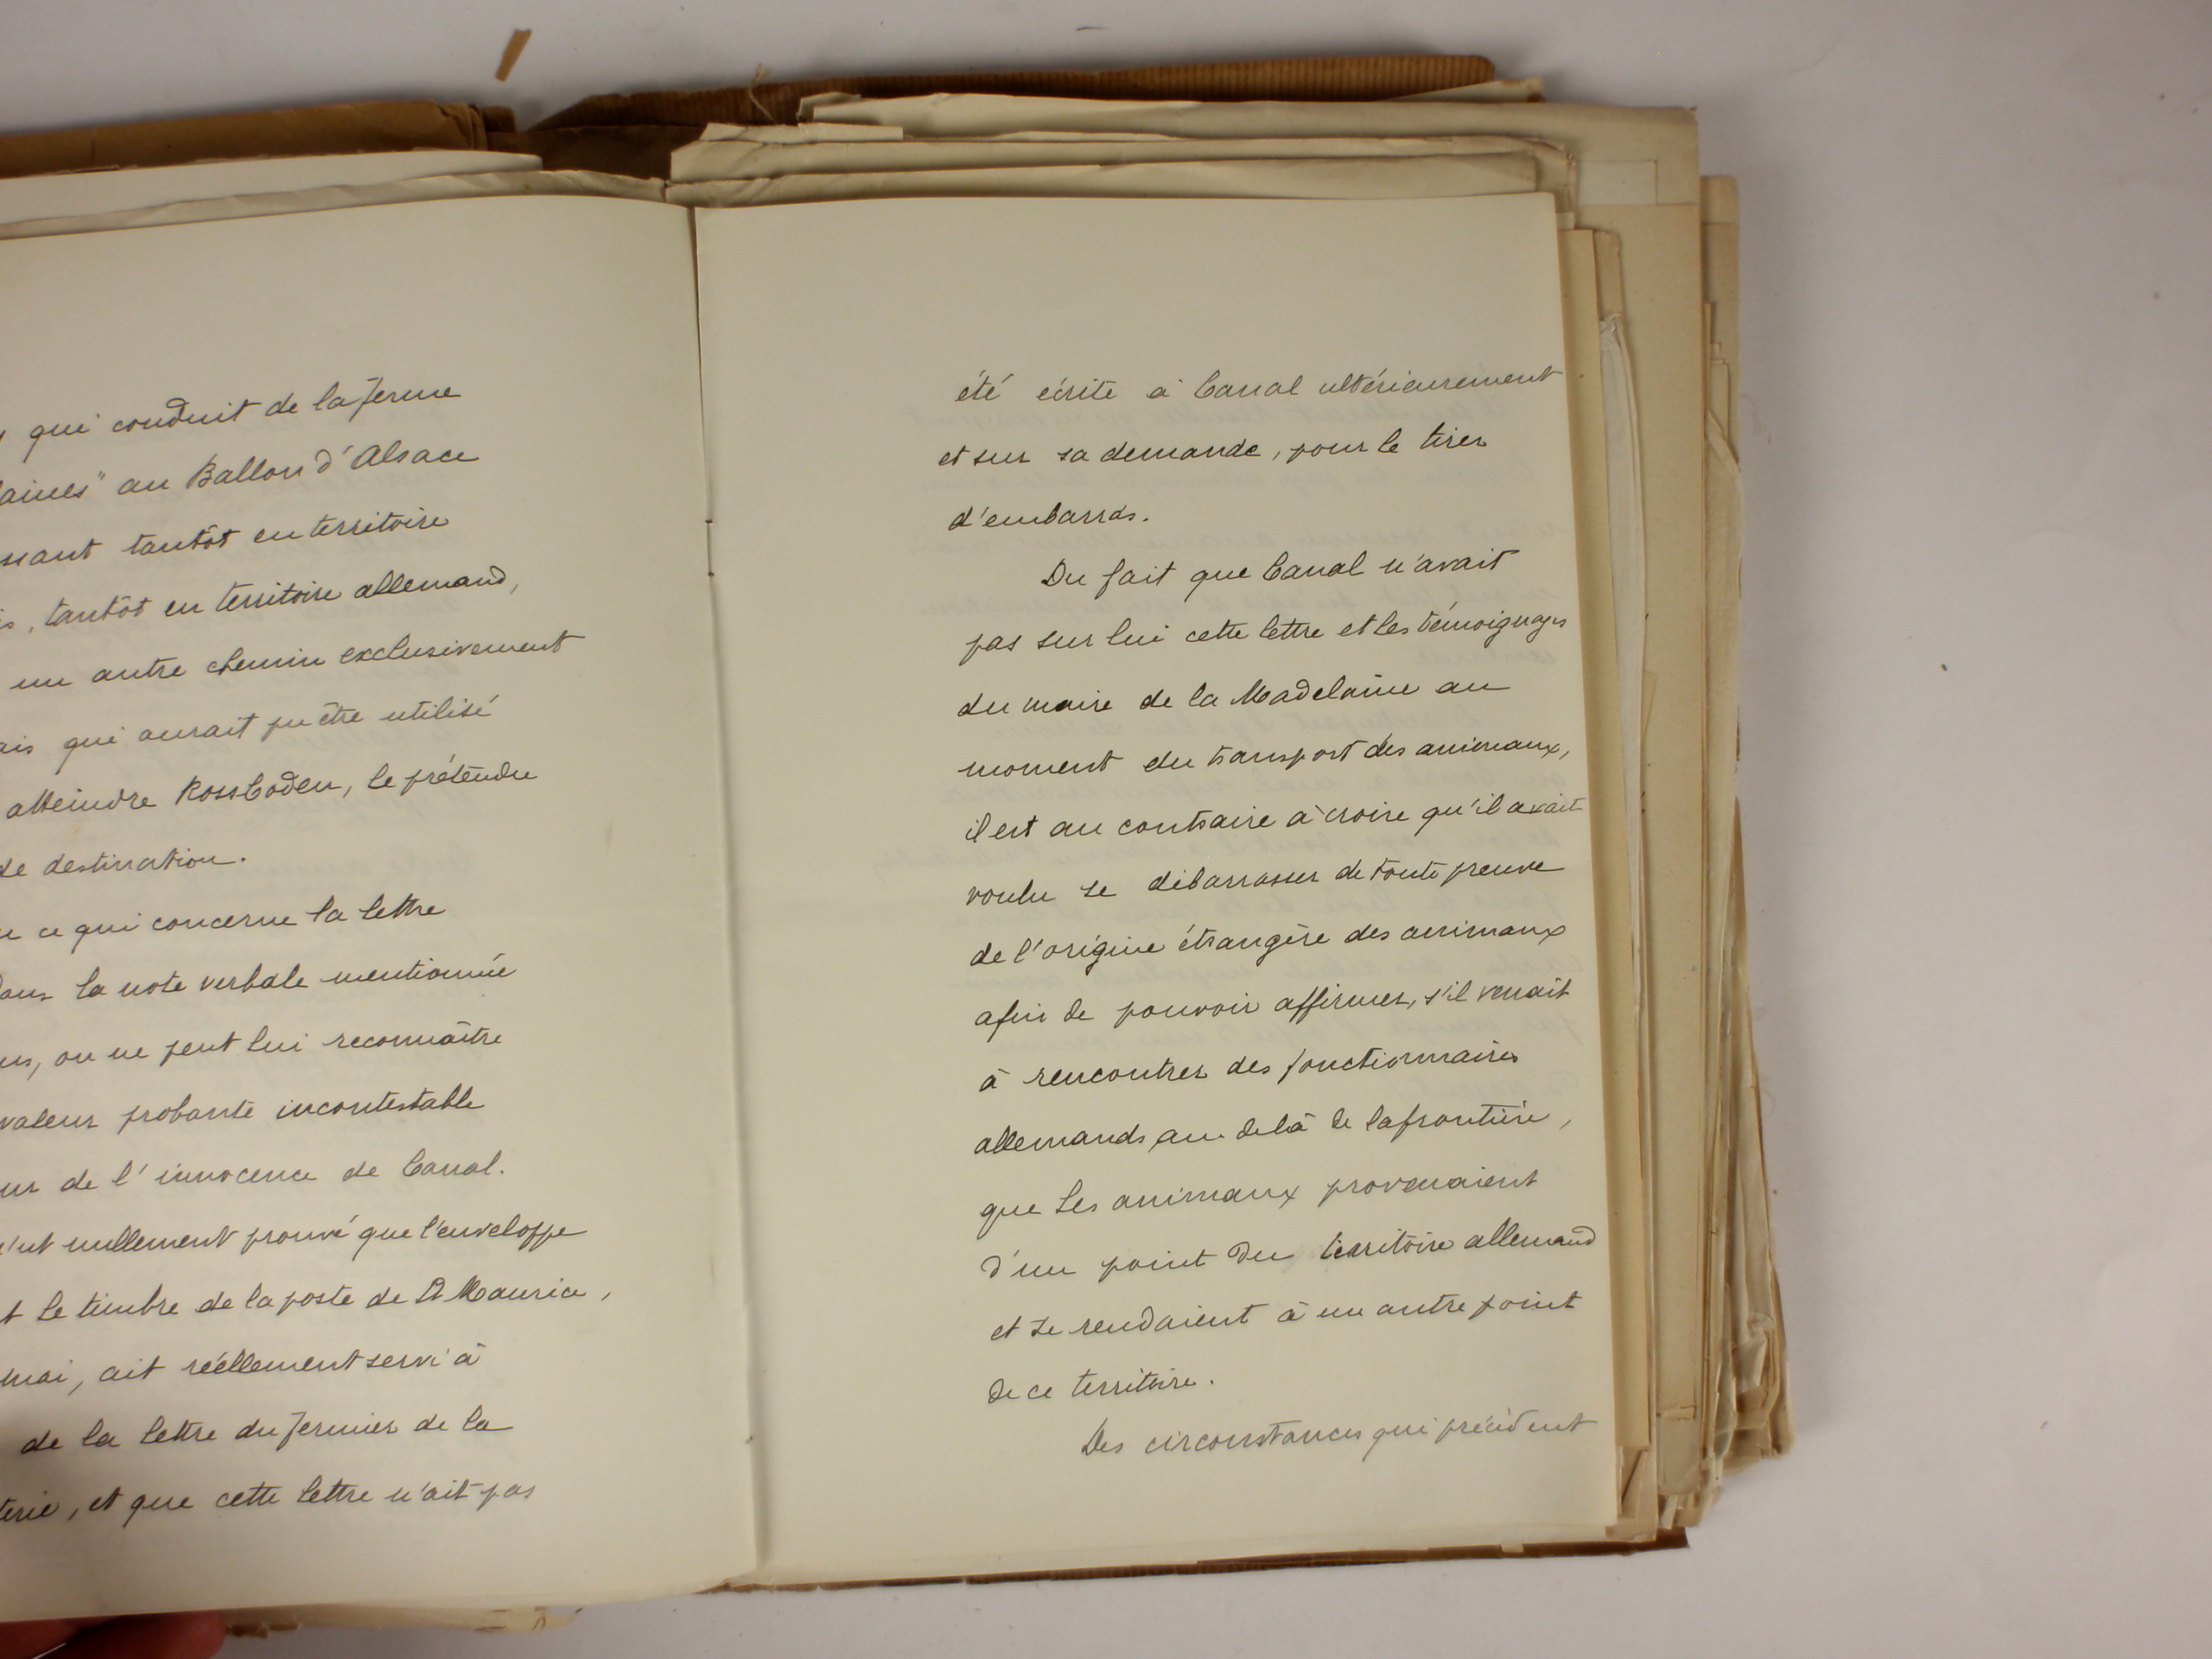 qui conduit de la ferme
aines" au Ballon d'Alsace
ssant tantôt en territoire
s, tantôt en territoire allemand,
un autre chemin exclusivement
ais qui aurait pu être utilisé
atteindre Rossboden, le prétendu
de destination.
ce qui concerne la lettre
dans la note verbale mentionnée
us, on ne peut lui reconnaître
valeur probante incontestable
ur de l'innocence de Canal.
n'est nullement prouvé que l'enveloppe
t le timbre de la poste de St Maurice,
mai, ait réellement servi à
de la lettre du fermier de la
terie, et que cette lettre n'ait pas
été écrite à Canal ultérieurement
et sur sa demande, pour le tirer
d'embarras.
Du fait que Canal n'avait
pas sur lui cette lettre et les témoignages
du maire de la Madelaine au
moment du transport des animaux,
il est au contraire à croire qu'il avait
voulu se débarrasser de toute preuve
de l'origine étrangère des animaux
afin de pouvoir affirmer, s'il venait
à rencontrer des fonctionnaires
allemands au delà de la frontière,
que les animaux provenaient
d'un point du territoire allemand
et se rendaient à un autre point
de ce territoire.
Des circonstances qui précèdent